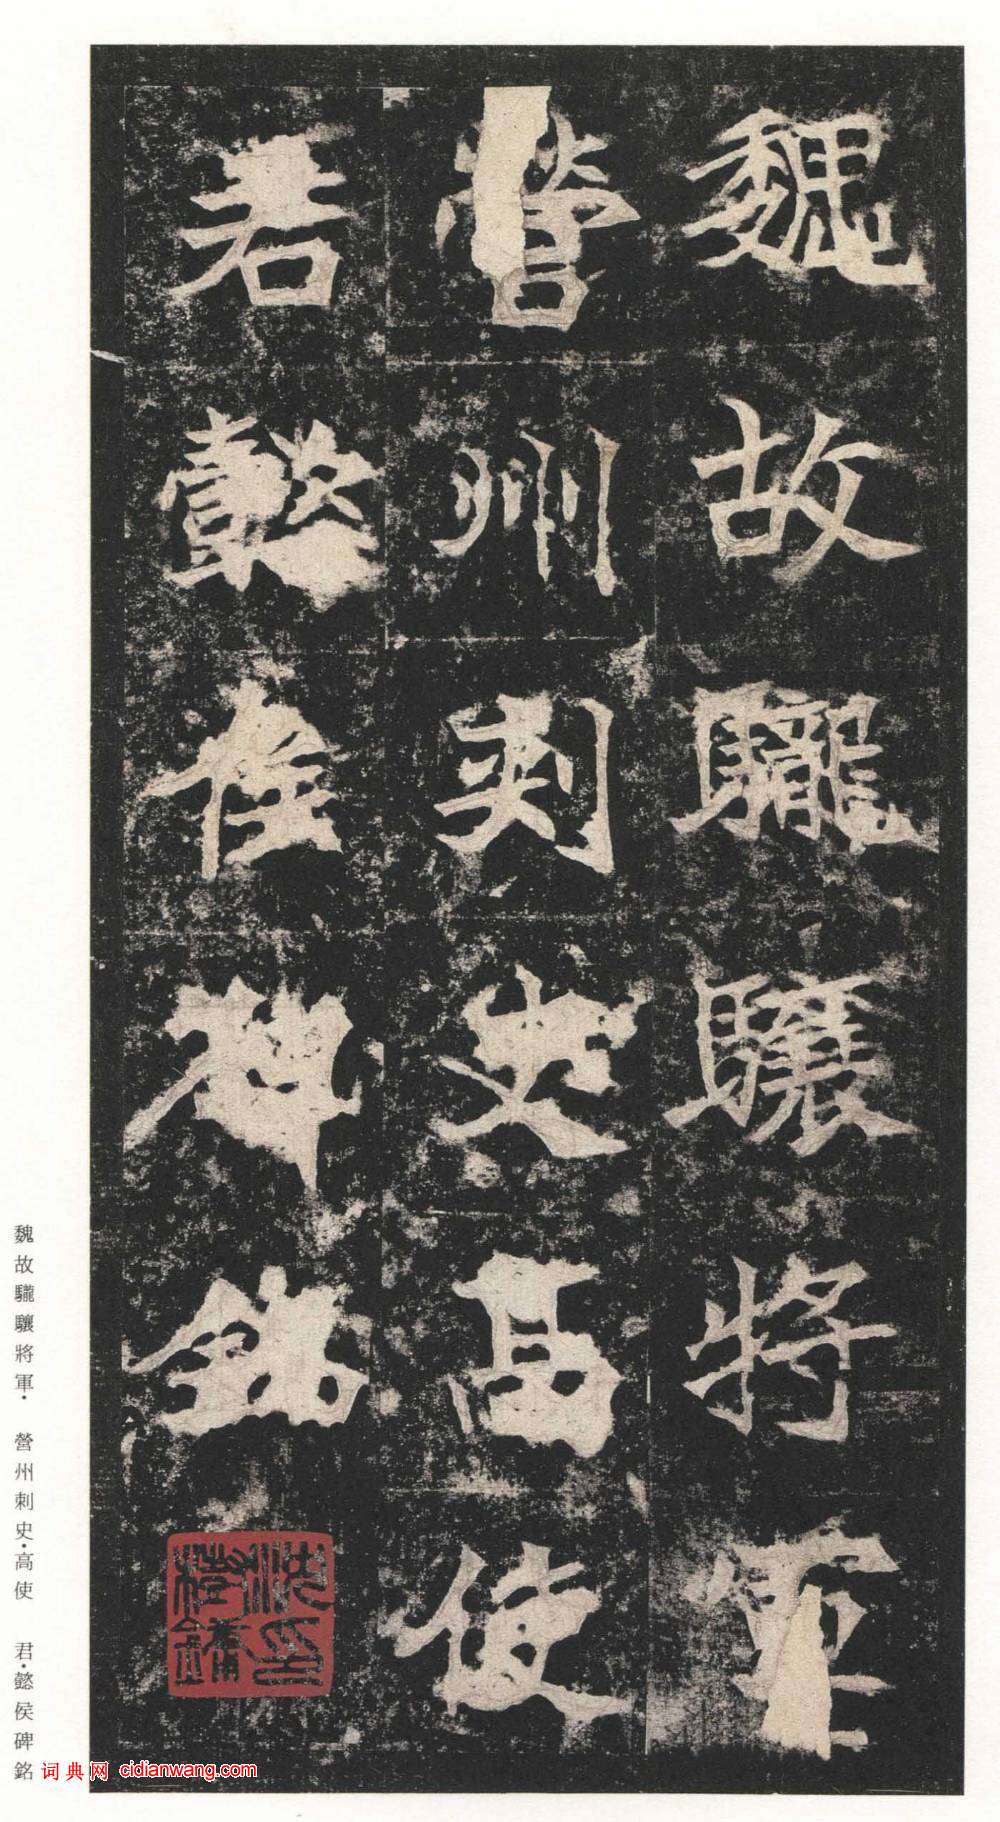 魏故驪驤將軍
營州刺史高使
君懿侯碑銘
魏故驪驤將軍·營州刺史·高使君·懿侯碑銘
词典网 cidianwang.com